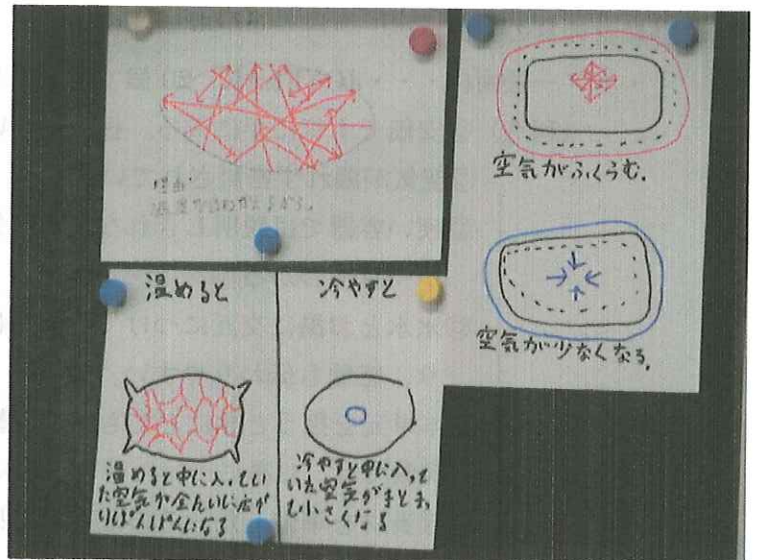 理由
空気がふくらむ。
空気が少なくなる。
温めると
冷やすと
温めると中に入ってい
た空気が全たいに広が
りぱんぱんになる
冷やすと中に入って
いた空気がまとまっ
て小さくなる